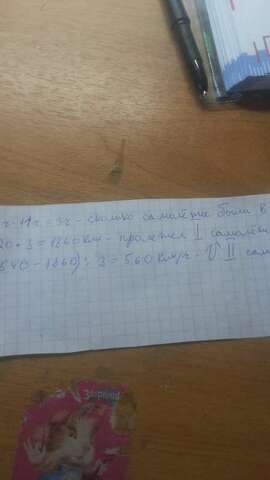 ч-11ч=3ч - сколько самолёты были в
20·3=1860км - пролетел I самолёт
540-1860):3=560км/ч - V II сам